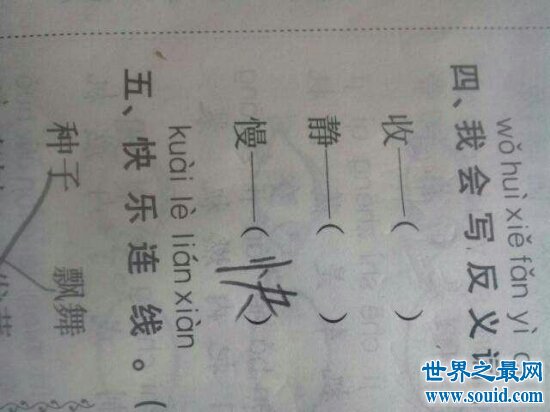 wǒ huì xiě fǎn yì
四、我会写反义
收——（ ）
静——（ ）
慢——（快）
kuài lè lián xiàn
五、快乐连线。（
种子
飘舞
世界之最网
www.souid.com